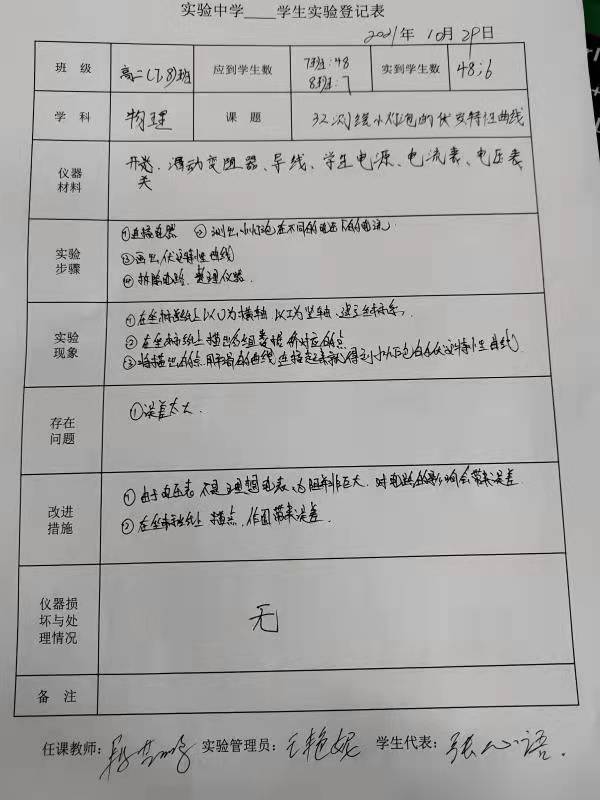 实验中学____学生实验登记表
2021年 10月 29日
班 级 高二(7,8)班 应到学生数 7班:48 8班:7 实到学生数 48;6
学 科 物理 课 题 32测绘小灯泡的伏安特性曲线
仪器材料 开关、滑动变阻器、导线、学生电源、电流表、电压表、
实验步骤 ①连接电路 ②测出小灯泡在不同的电压下的电流
③画出伏安特性曲线
④拆除电路、整理仪器.
实验现象 ①在坐标纸上以U为横轴,以I为竖轴,建立坐标系.
②在坐标纸上描出各组数据所对应的点
③将描出的点用平滑的曲线连接起来就得到小灯泡的伏安特性曲线
存在问题 ①误差太大.
改进措施 ①由于电压表不是理想电表,内阻并非巨大,对电路的影响会带来误差
②在坐标纸上描点、作图带来误差.
仪器损坏与处理情况 无
备 注
任课教师: 实验管理员:王艳妮 学生代表:张心语.